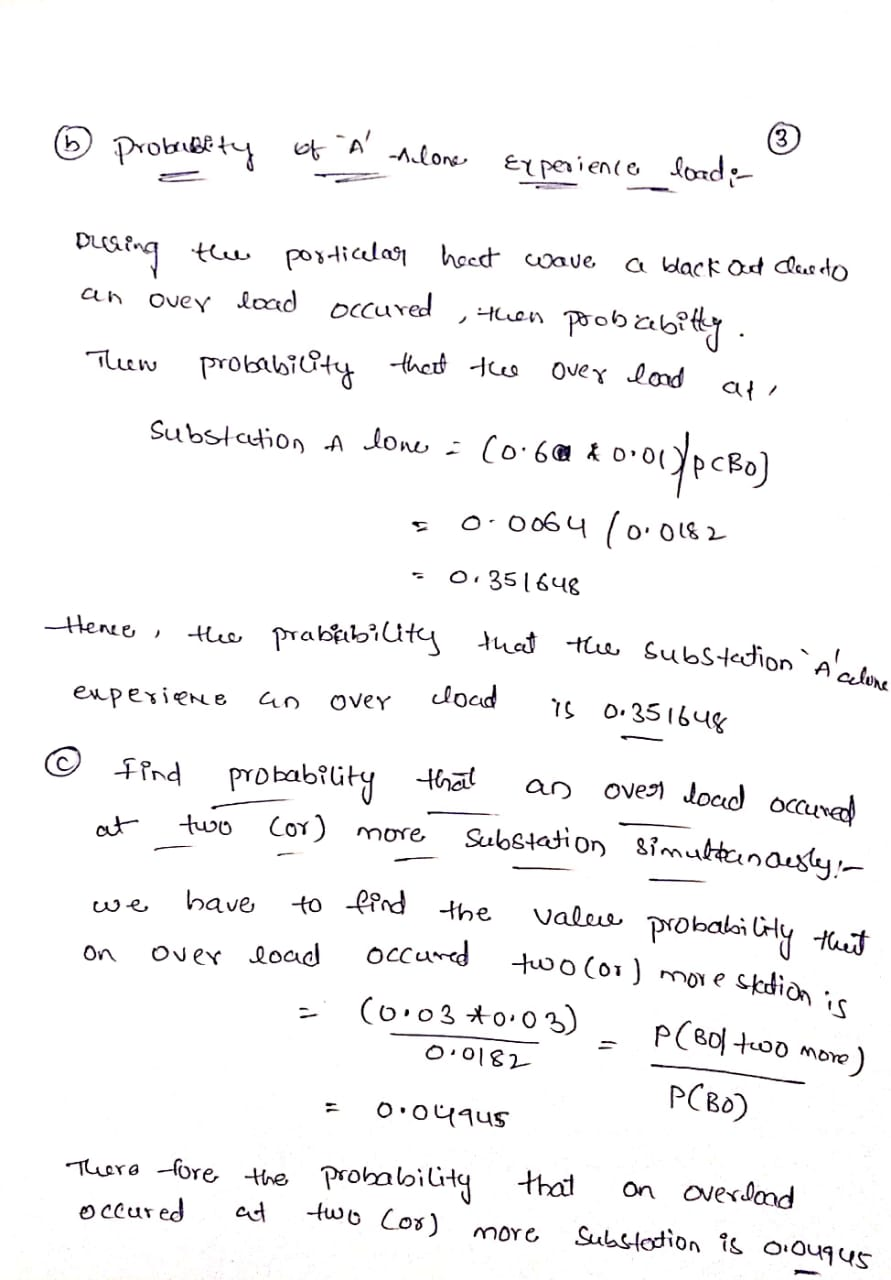 ③
ⓑ Probability of 'A' Alone Experience load:-
During the particular heat wave a black out due to
an over load occured, then probabitty.
Then probability that the over load at,
Substation A lone = (0.6 * 0.01)/P(BO)
= 0.0064 / 0.0182
= 0.351648
Hence, the prabability that the substation 'A' alone
experience an over load is 0.351648
ⓒ find probability that an over load occured
at two (or) more substation simultanously:-
we have to find the value probability that
on over load occured two (or) more station is
= (0.03 * 0.03) / 0.0182 = P(BO/two more) / P(BO)
= 0.04945
There fore the probability that on overload
occured at two (or) more substation is 0.04945